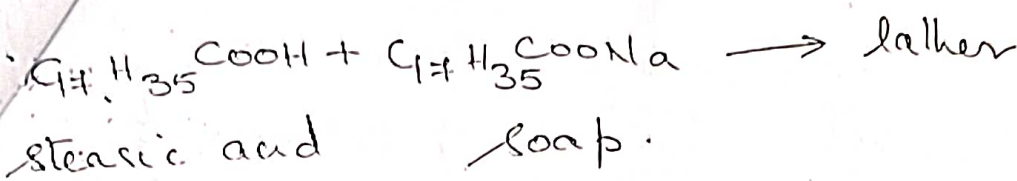 C₁₇H₃₅COOH + C₁₇H₃₅COONa → lather
stearic acid soap.